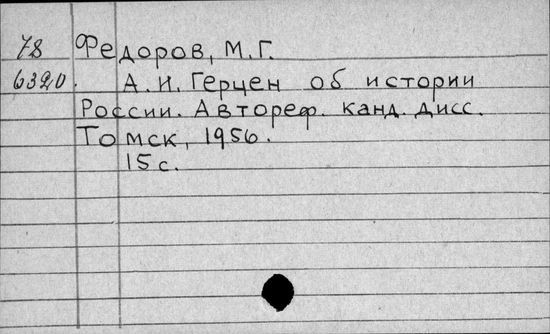 78 Федоров, М.Г.
6320. А.И. Герцен об истории
России. Автореф. канд. дисс.
Томск, 1956.
15 с.